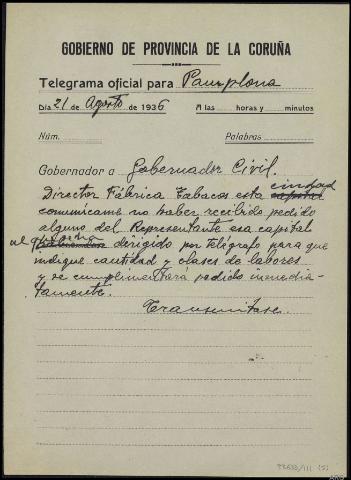 GOBIERNO DE PROVINCIA DE LA CORUÑA
Telegrama oficial para Pamplona
Día 21 de Agosto de 1936 A las horas y minutos
Núm. Palabras
Gobernador a Gobernador Civil.
Director Fábrica Tabacos esta capital ciudad
comunícame no haber recibido pedido
alguno del Representante esa capital
al dirigido por telégrafo para que
indique cantidad y clases de labores
y se cumplimentará pedido inmedia-
tamente.
Transmítase.